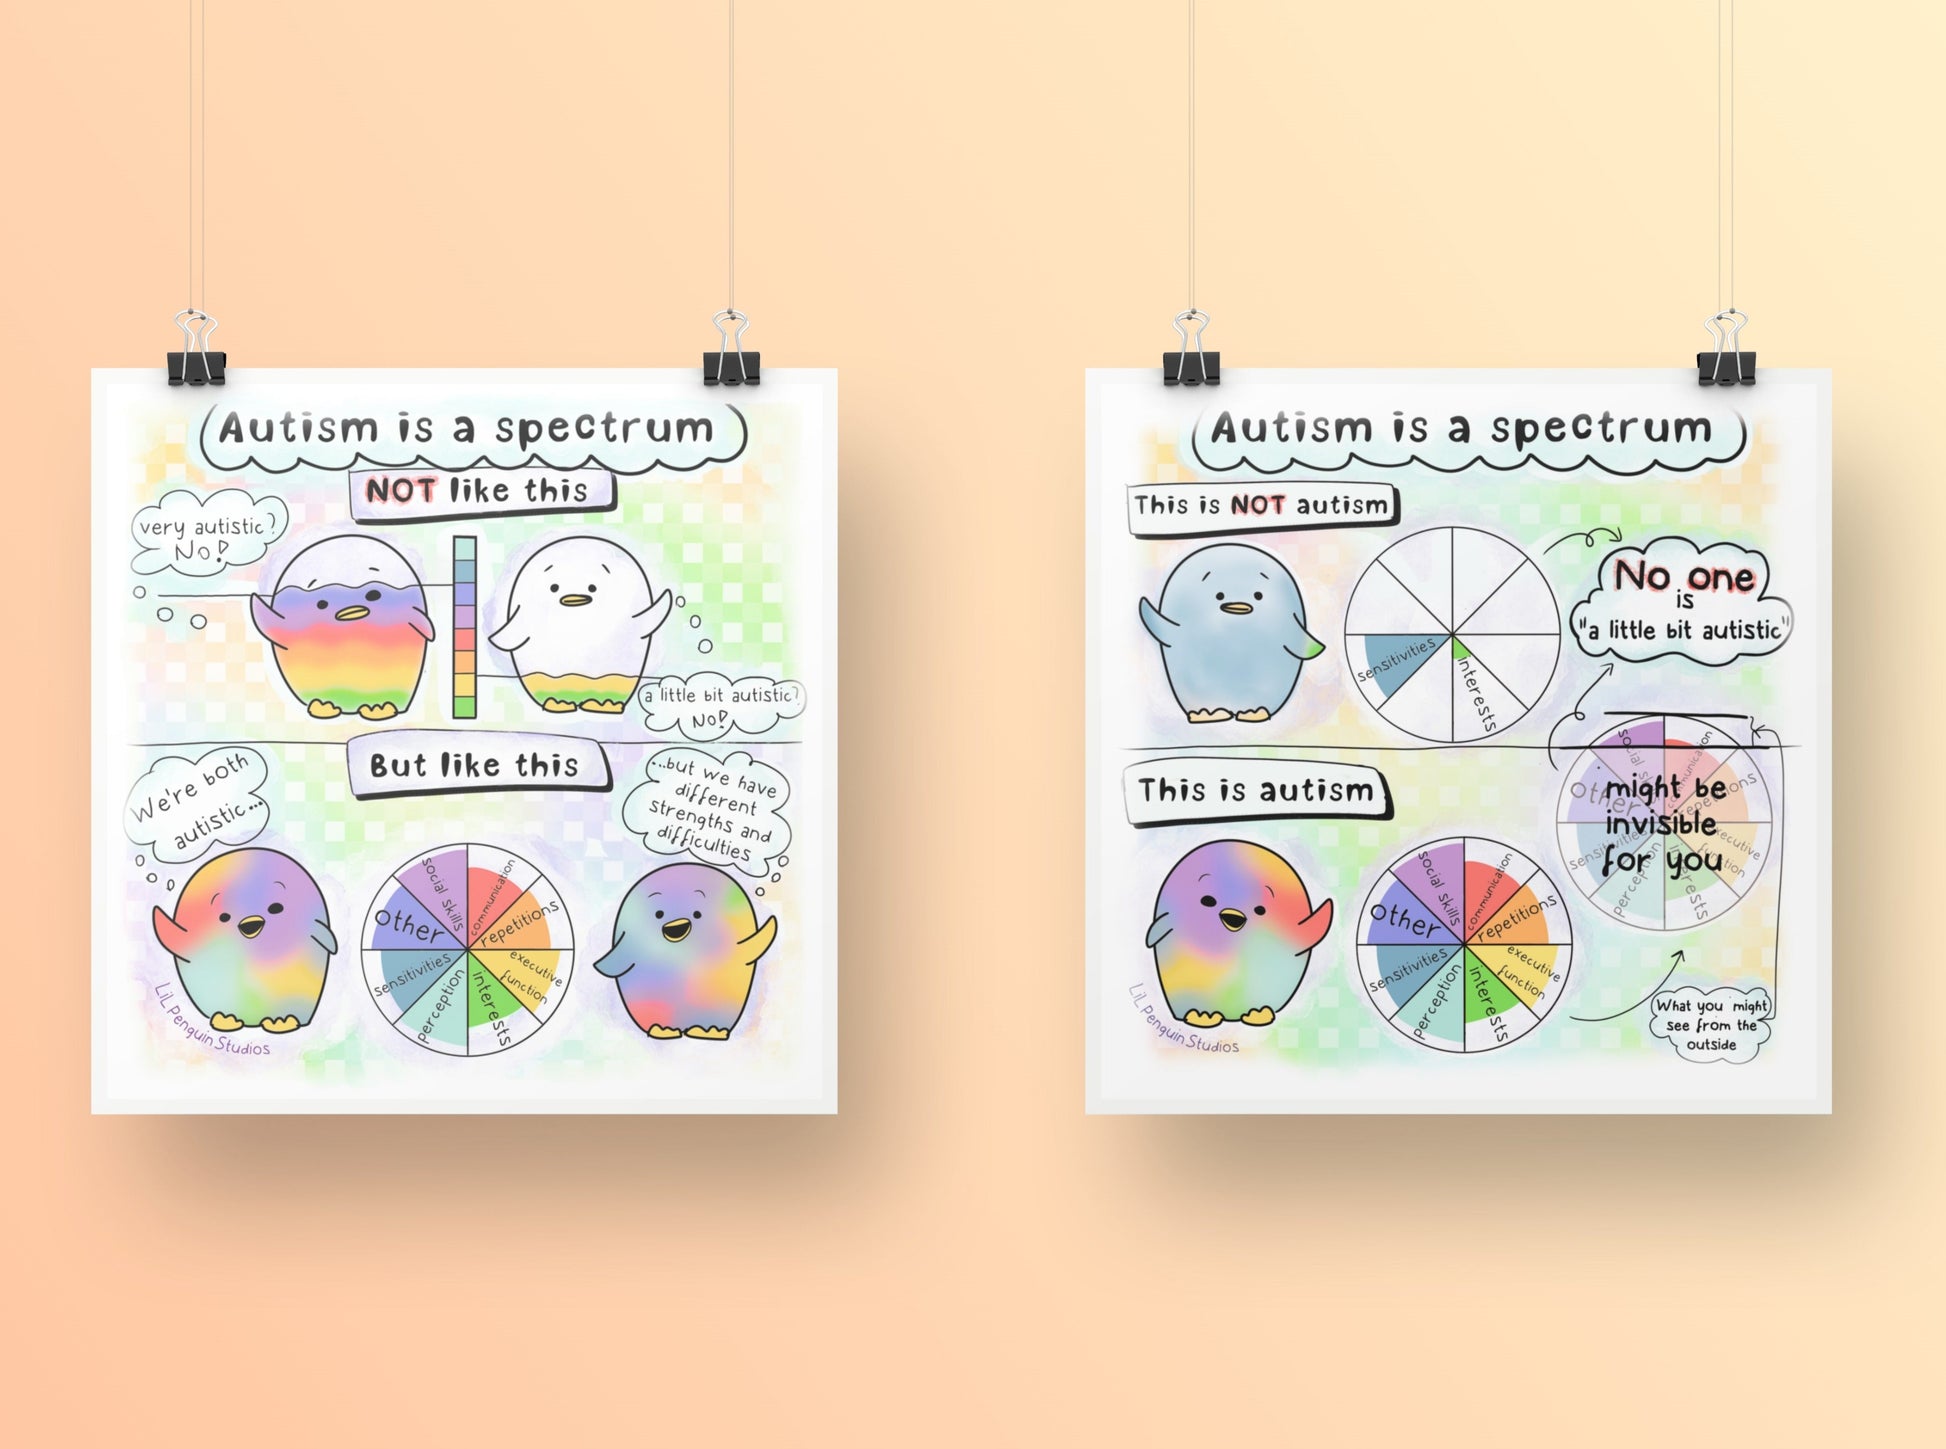 Autism is a spectrum
NOT like this
very autistic?
No!
a little bit autistic?
NO!
But like this
We're both
autistic...
...but we have
different
strengths and
difficulties
social skills
communication
repetitions
executive
function
interests
perception
sensitivities
Other
LiL Penguin Studios
Autism is a spectrum
This is NOT autism
sensitivities
interests
No one
is
"a little bit autistic"
This is autism
social skills
communication
repetitions
executive
function
interests
perception
sensitivities
Other
might be
invisible
for you
social sk
communication
repetitions
executive
function
interests
perception
sensitivities
Other
What you might
see from the
outside
LiL Penguin Studios